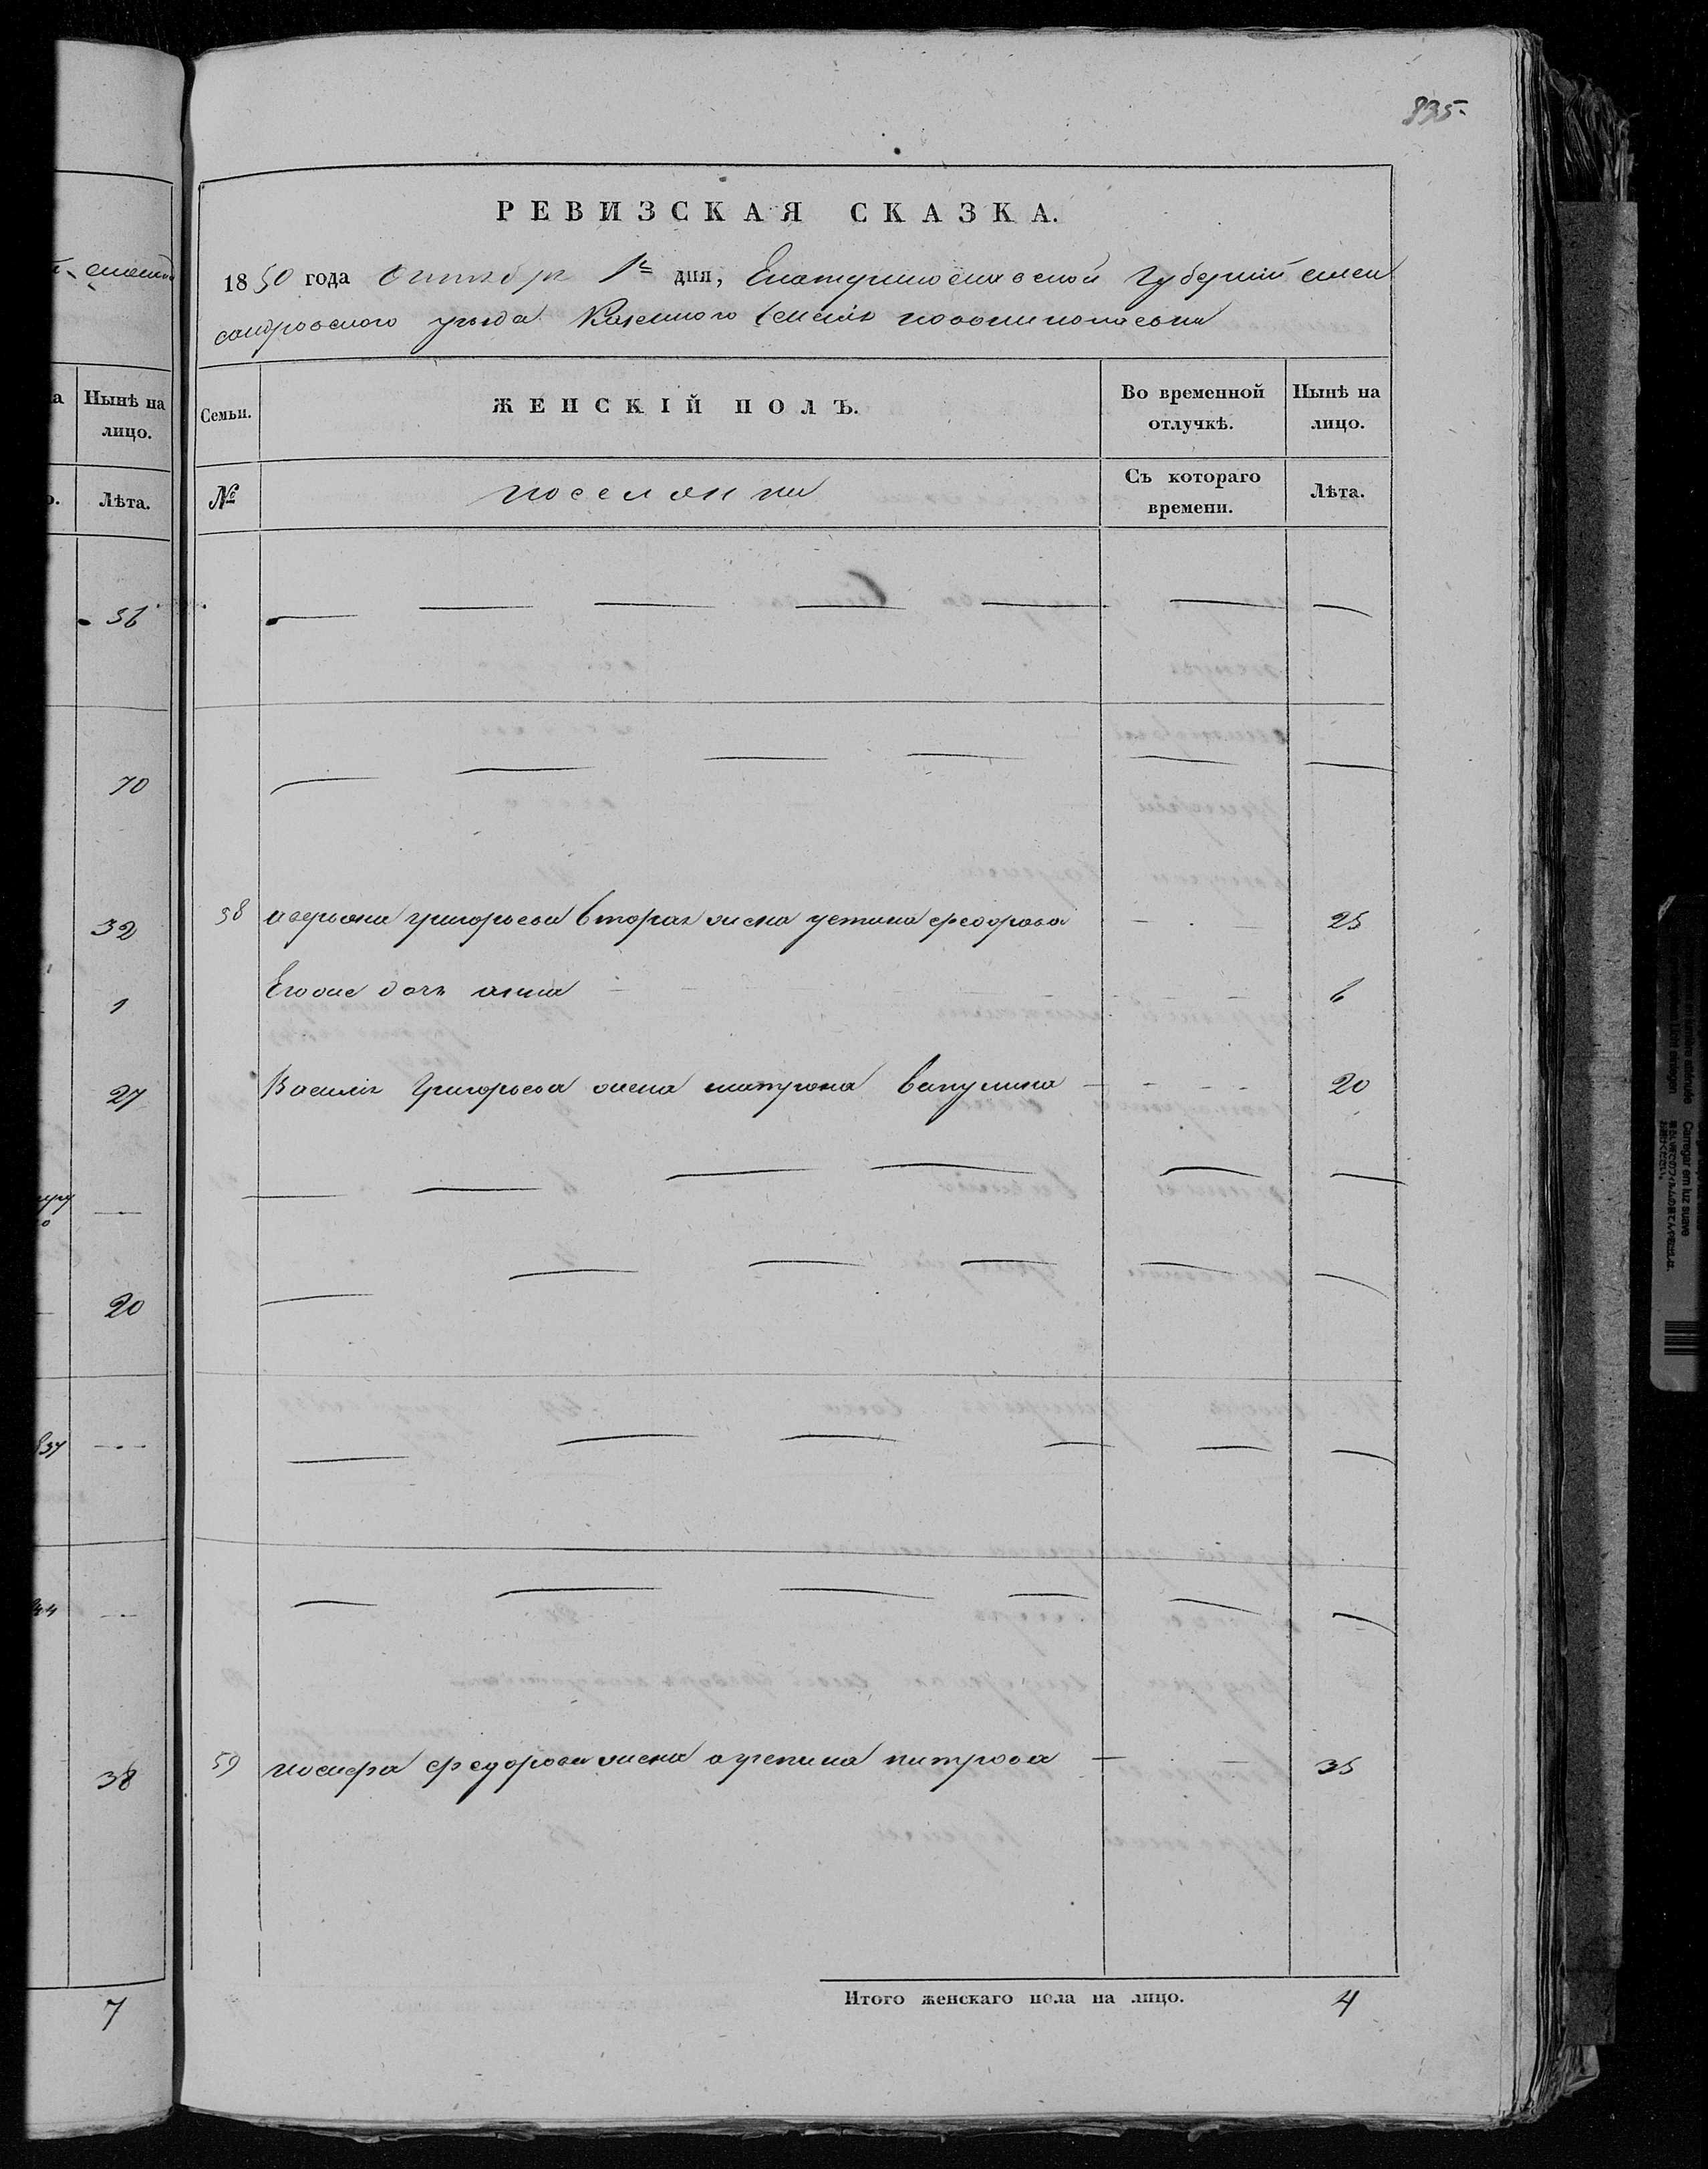 835.
РЕВИЗСКАЯ СКАЗКА.
1850 года октября 1го дня, Екатеринославской Губерний алек
сандровского уезда Казенного селения новониколаевки
на
Нынѣ на
лицо.
Лѣта.
Семьи.
ЖЕНСКІЙ ПОЛЪ.
Во временной
отлучкѣ.
Нынѣ на
лицо.
№
поселянки
Съ котораго
времени.
Лѣта.
36
70
32
58 аверьяна григорьева вторая жена устина федорова 25
1
Его оне дочь анна 6
27
Василія Григорьева жена матрона вакулина 20
20
837
44
38
59 иосифа федорова жена агрепина питрова 35
7
Итого женскаго пола на лицо. 4